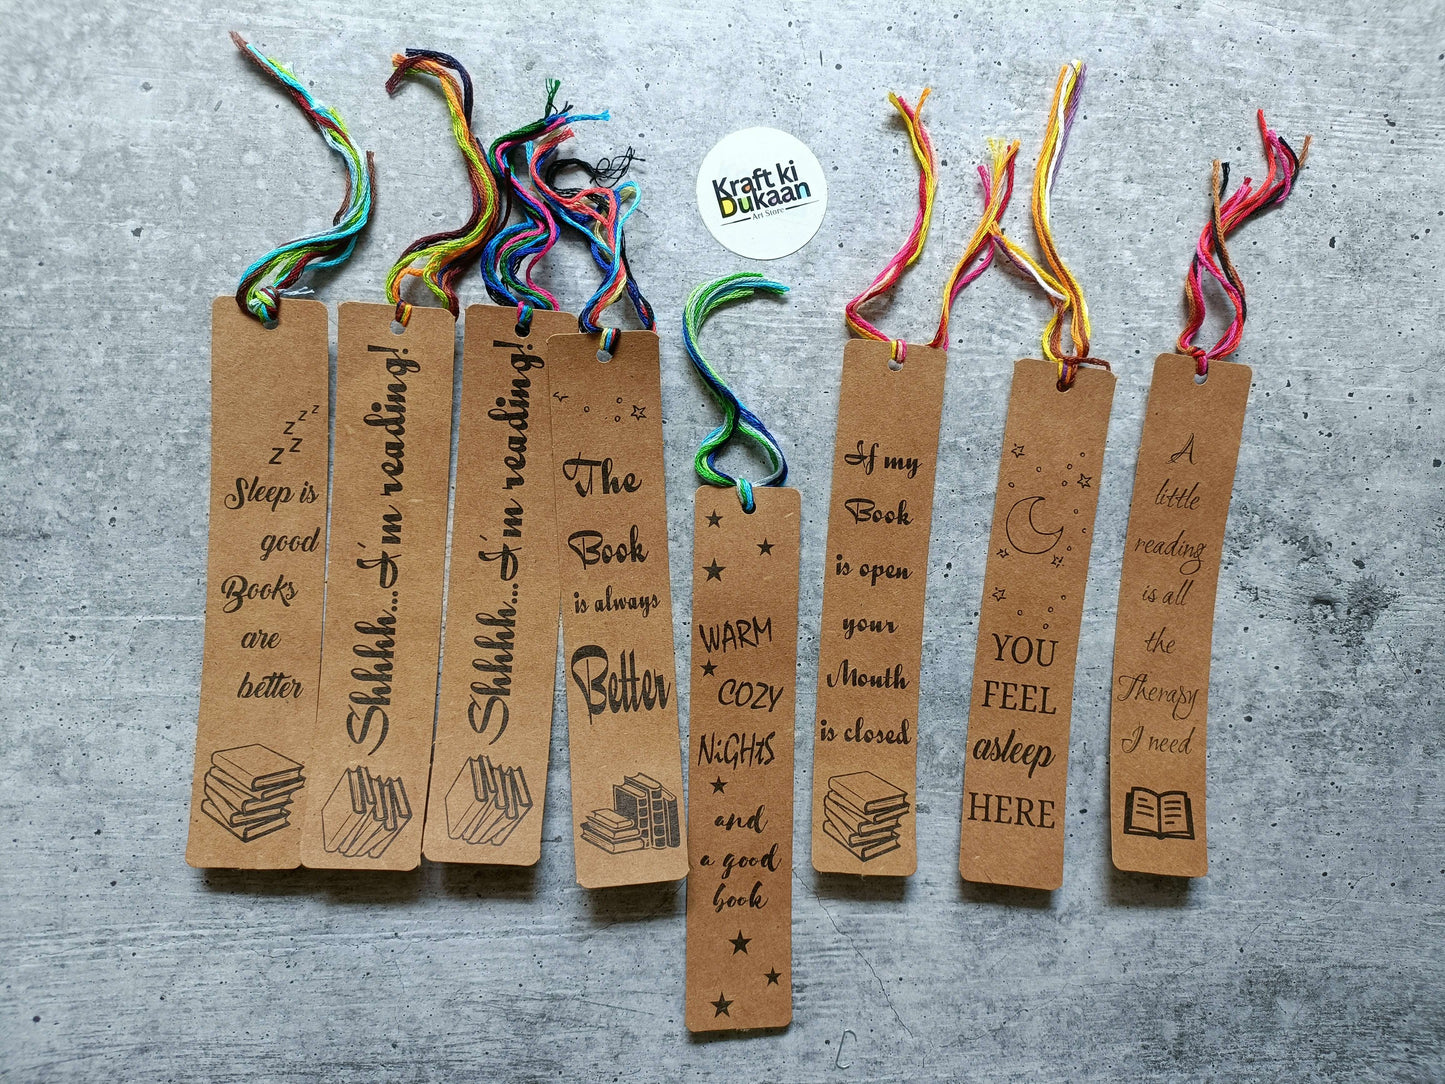 Kraft ki
Dukaan
Art Store
z z z z
Sleep is
good
Books
are
better
Shhhh...I'm reading!
Shhhh...I'm reading!
The
Book
is always
Better
WARM
COZY
NiGHtS
and
a good
book
If my
Book
is open
your
Mouth
is closed
YOU
FEEL
asleep
HERE
A
little
reading
is all
the
Therapy
I need